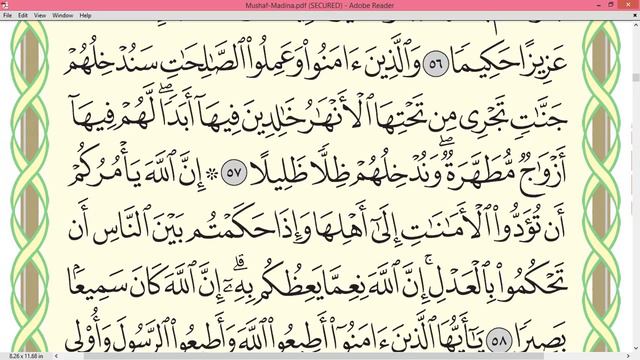 Mushaf-Madina.pdf (SECURED) - Adobe Reader
File Edit View Window Help
عَزِيزًا حَكِيمًا ٥٦ وَالَّذِينَ ءَامَنُوا۟ وَعَمِلُوا۟ الصَّٰلِحَٰتِ سَنُدْخِلُهُمْ
جَنَّٰتٍ تَجْرِى مِن تَحْتِهَا الْأَنْهَٰرُ خَٰلِدِينَ فِيهَآ أَبَدًا ۖ لَّهُمْ فِيهَآ
أَزْوَٰجٌ مُّطَهَّرَةٌ ۖ وَنُدْخِلُهُمْ ظِلًّا ظَلِيلًا ٥٧ ۞ إِنَّ اللَّهَ يَأْمُرُكُمْ
أَن تُؤَدُّوا۟ الْأَمَٰنَٰتِ إِلَىٰٓ أَهْلِهَا وَإِذَا حَكَمْتُم بَيْنَ النَّاسِ أَن
تَحْكُمُوا۟ بِالْعَدْلِ ۚ إِنَّ اللَّهَ نِعِمَّا يَعِظُكُم بِهِۦٓ ۗ إِنَّ اللَّهَ كَانَ سَمِيعًۢا
بَصِيرًا ٥٨ يَٰٓأَيُّهَا الَّذِينَ ءَامَنُوٓا۟ أَطِيعُوا۟ اللَّهَ وَأَطِيعُوا۟ الرَّسُولَ وَأُو۟لِى
8.26 x 11.68 in